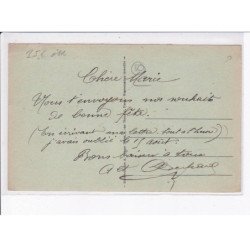 Chère Marie
Nous t'envoyons nos souhaits
de bonne fête.
(En écrivant ma lettre tout à l'heure
j'avais oublié le 15 août.
Bons baisers à tous